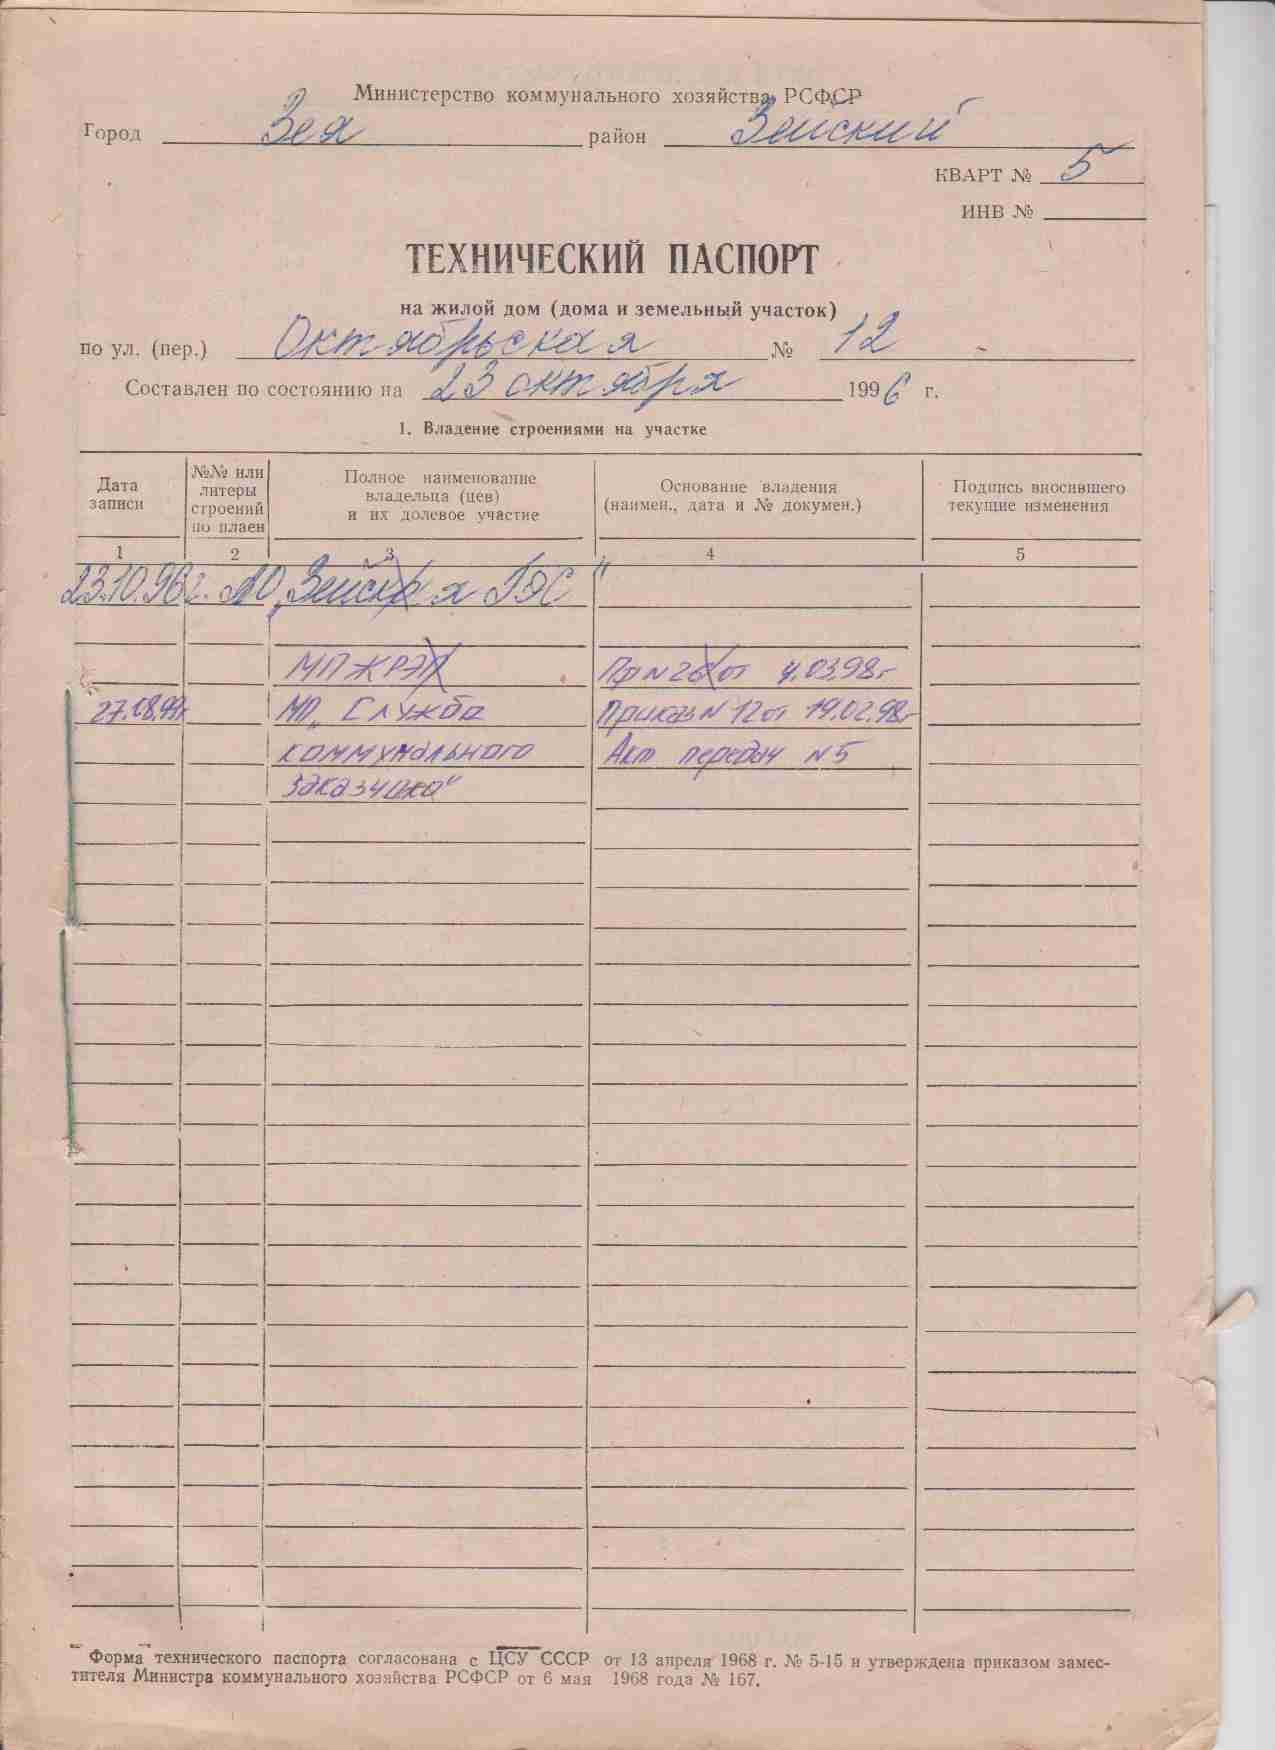 Министерство коммунального хозяйства РСФСР
Город Зея район Зейский
КВАРТ № 5
ИНВ №
ТЕХНИЧЕСКИЙ ПАСПОРТ
на жилой дом (дома и земельный участок)
по ул. (пер.) Октябрьская № 12
Составлен по состоянию на 23 октября 1996 г.
1. Владение строениями на участке
Дата записи
№№ или литеры строений по плаен
Полное наименование владельца (цев) и их долевое участие
Основание владения (наимен., дата и № докумен.)
Подпись вносившего текущие изменения
1 2 3 4 5
23.10.96г. АО „Зейская ГЭС"
МПЖРЭП Пр N 26 от 4.03.98г
27.08.99г МП „Служба Приказ N 12 от 19.02.98г
коммунального Акт передач N5
заказчика"
Форма технического паспорта согласована с ЦСУ СССР от 13 апреля 1968 г. № 5-15 и утверждена приказом замес-
тителя Министра коммунального хозяйства РСФСР от 6 мая 1968 года № 167.